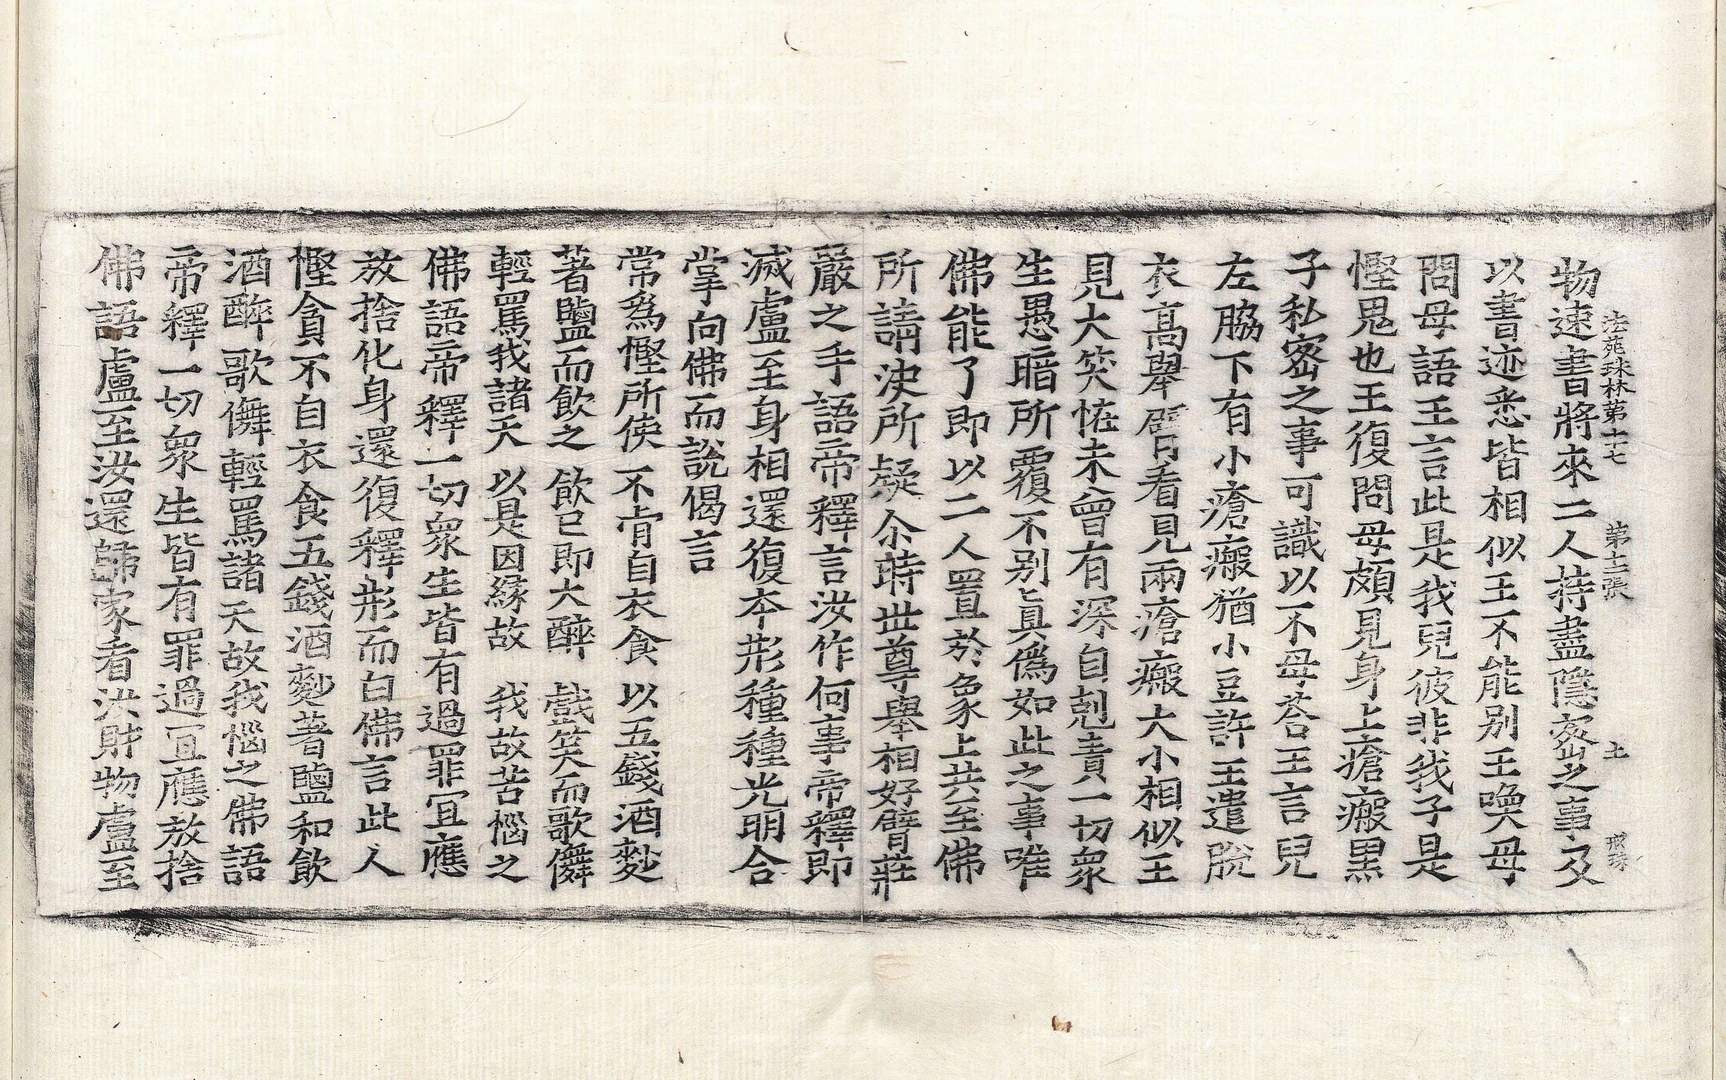 法苑珠林第十七 張 土 戒珠
物速書將來二人持盡隱密之事及
以書迹悉皆相似王不能别王喚母
問母語王言此是我兒彼非我子是
慳鬼也王復問母頗見身上瘡瘢黑
子私密之事可識以不母荅王言兒
左脇下有小瘡瘢猶小豆許王遣脫
衣髙舉臂看見兩瘡瘢大小相似王
見大笑恠未曾有深自剋責一切衆
生愚暗所覆不别真僞如此之事唯
佛能了即以二人置於象上共至佛
所請决所疑尒時世尊舉相好臂莊
嚴之手語帝釋言汝作何事帝釋即
滅盧至身相還復本形種種光明合
掌向佛而說偈言
常爲慳所使 不肯自衣食 以五錢酒麨
著鹽而飲之 飲已即大醉 戲笑而歌儛
輕罵我諸天 以是因緣故 我故苦惱之
佛語帝釋一切衆生皆有過罪冝應
放捨化身還復釋形而白佛言此人
慳貪不自衣食五錢酒麨著鹽和飲
酒醉歌儛輕罵諸天故我惱之佛語
帝釋一切衆生皆有罪過冝應放捨
佛語盧至汝還歸家看汝財物盧至